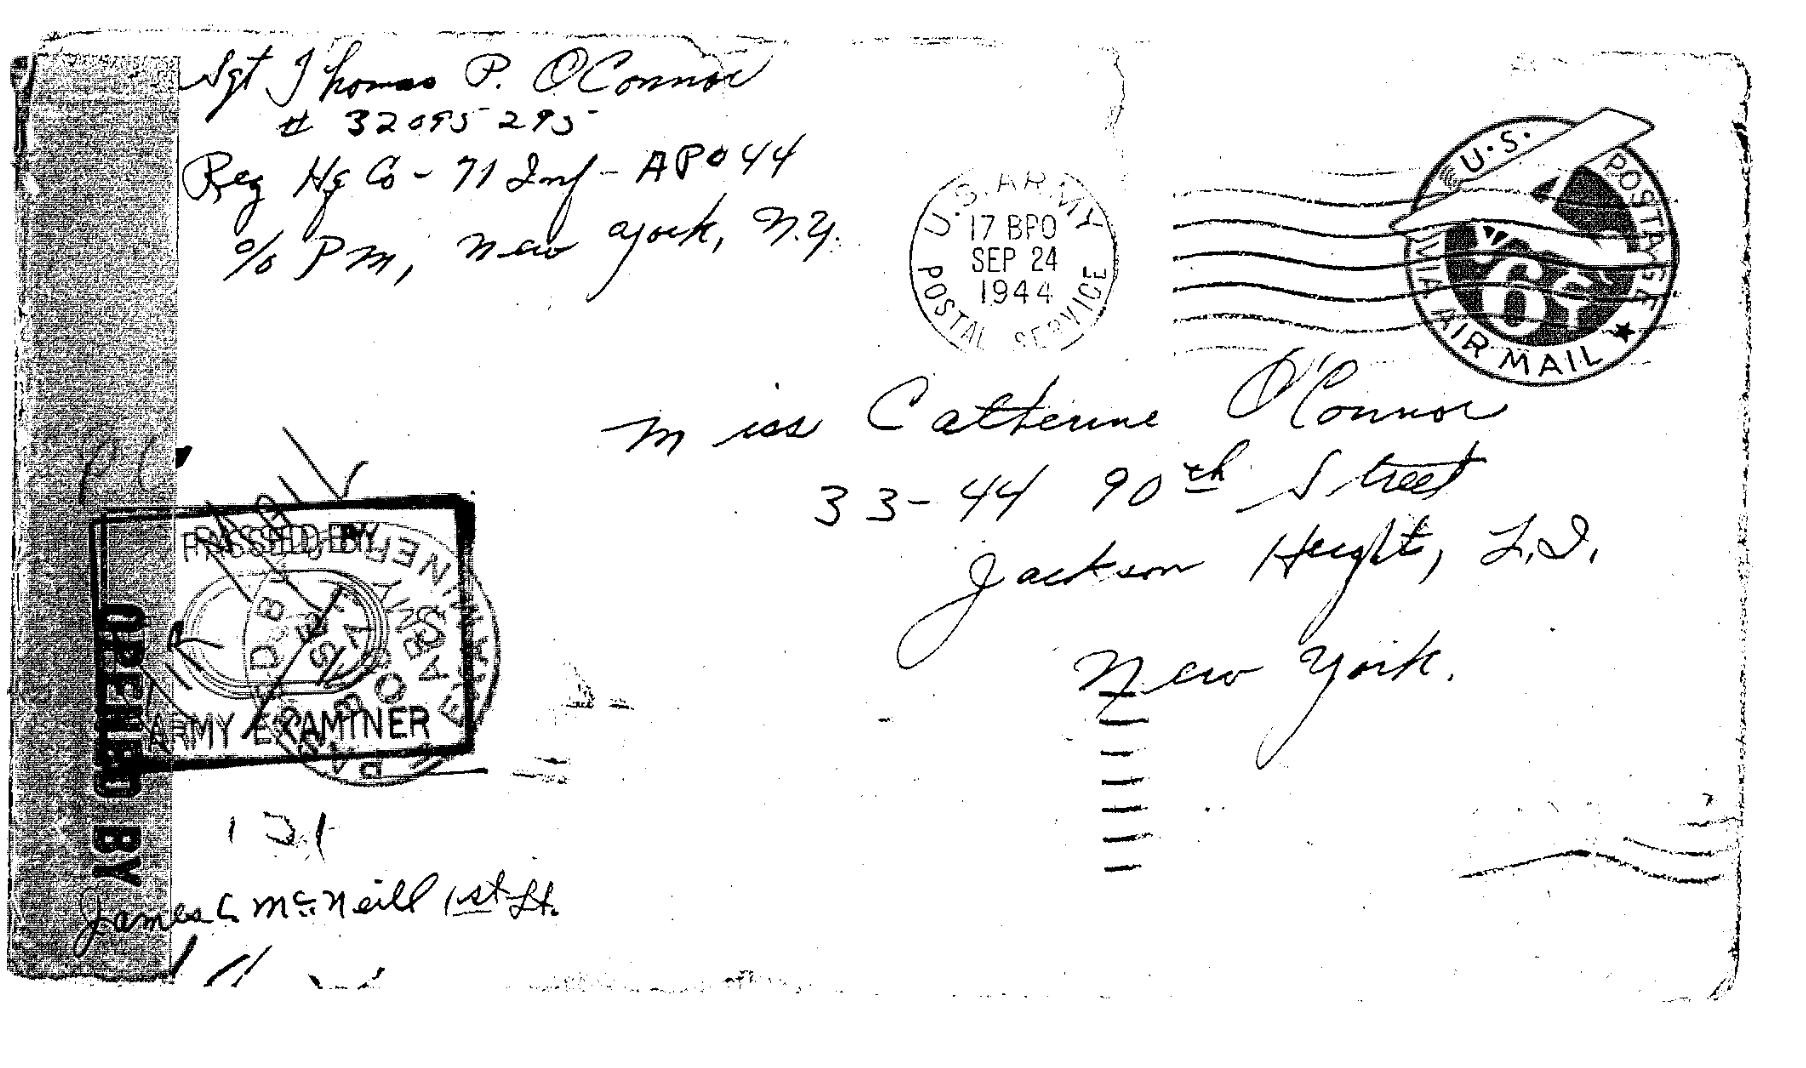 Sgt Thomas P. O'Connor
# 32095295
Reg Hq Co - 71 Inf - APO 44
c/o PM, New York, N.Y.
U.S. ARMY
17 BPO
SEP 24
1944
POSTAL SERVICE
U.S. POSTAGE
6¢
VIA AIR MAIL
Miss Catherine O'Connor
33-44 90th Street
Jackson Heights, L.I.
New York.
PASSED BY
ARMY EXAMINER
OPENED BY
James C. McNeill 1st Lt.